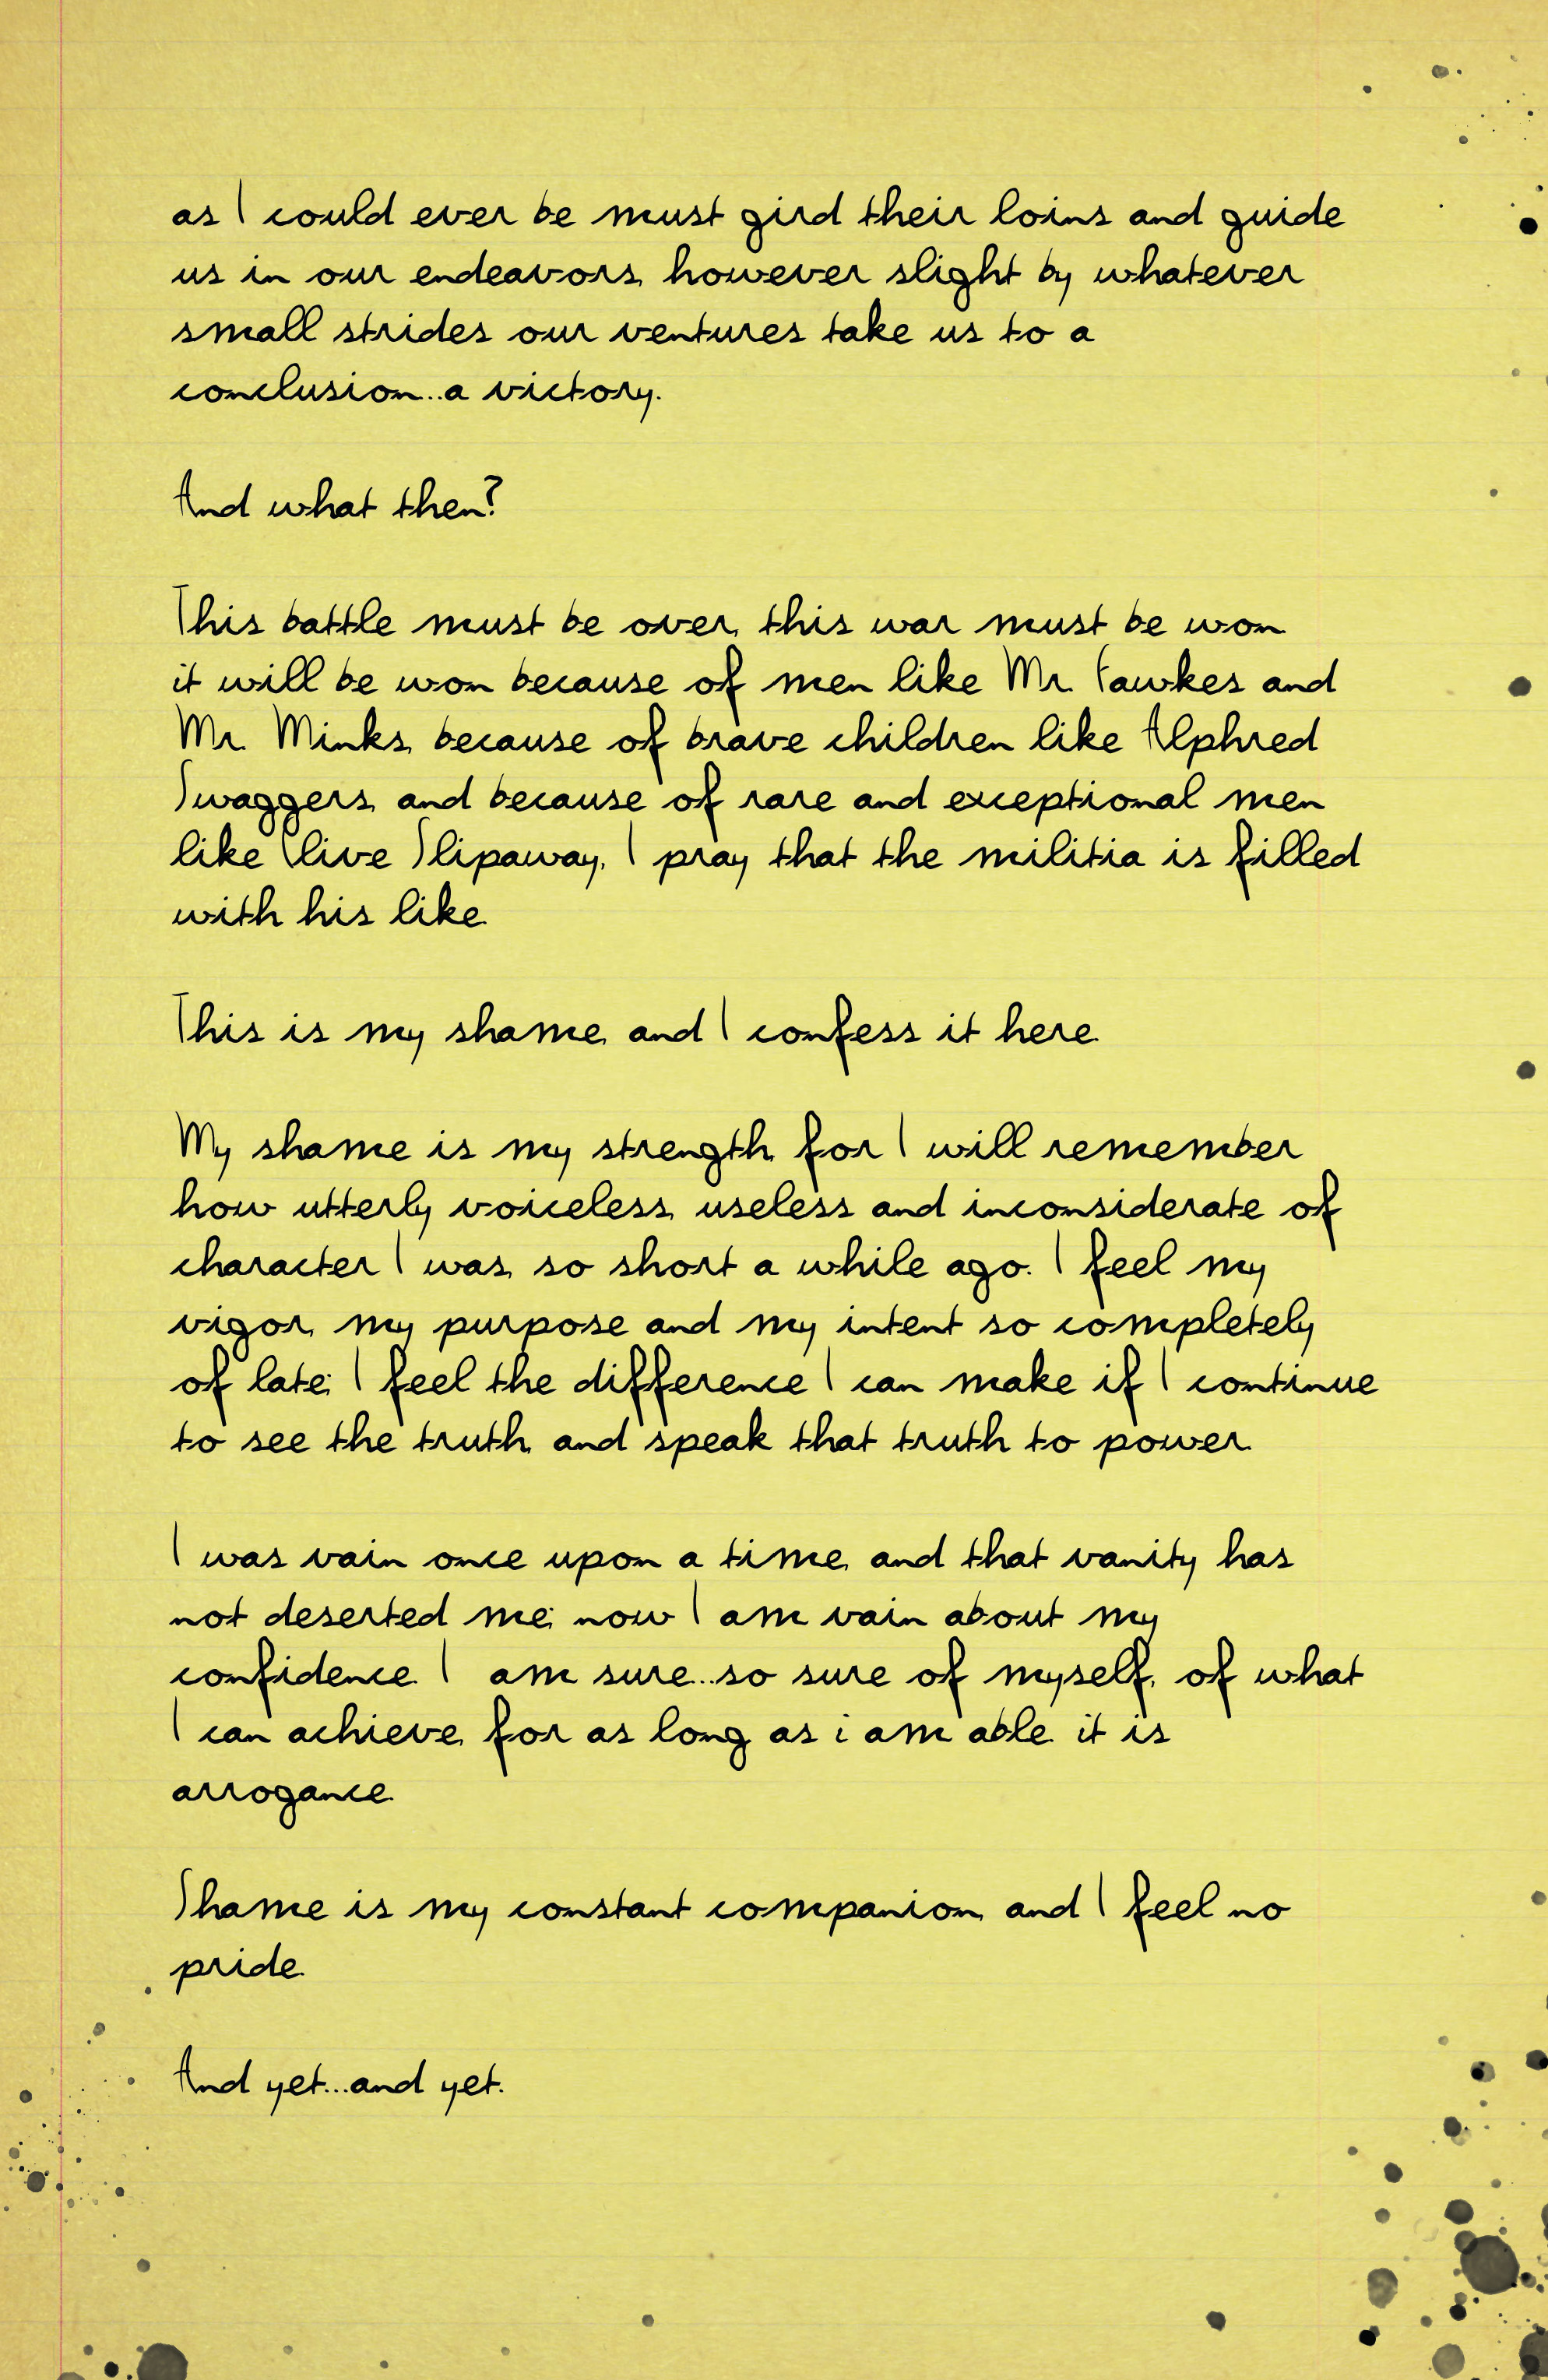 as I could ever be must gird their loins and guide
us in our endeavors, however slight by whatever
small strides our ventures take us to a
conclusion...a victory.
And what then?
This battle must be over, this war must be won
it will be won because of men like Mr. Fawkes and
Mr. Minks, because of brave children like Alphred
Swaggers, and because of rare and exceptional men
like Clive Slipaway. I pray that the militia is filled
with his like.
This is my shame, and I confess it here.
My shame is my strength, for I will remember
how utterly voiceless, useless and inconsiderate of
character I was, so short a while ago. I feel my
vigor, my purpose and my intent so completely
of late; I feel the difference I can make if I continue
to see the truth, and speak that truth to power.
I was vain once upon a time, and that vanity has
not deserted me; now I am vain about my
confidence. I am sure...so sure of myself, of what
I can achieve, for as long as i am able. it is
arrogance.
Shame is my constant companion, and I feel no
pride.
And yet...and yet.